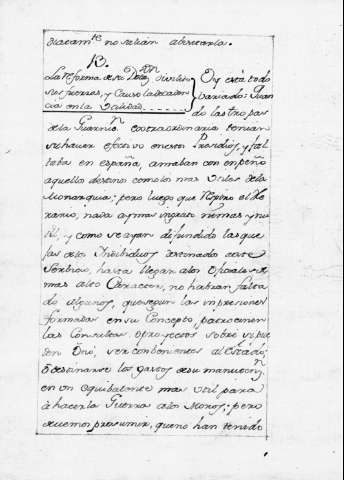 diacam.te no salian abiertarla.
13.
La reforma de su Dotz.on dividio
sus fuerzas, y Causò la decaden
cia en la Calidad.
Oy està todo
bariado: Quan
do las tropas
de la Guarniz.n extraordinaria tenian
su haver efectivo en este Presidio, y fal
taba en españa, amaban con enpeño
aquellos destinos como los mas utiles de la
Monarquia; pero luego que respiró el He
rario, nada ay mas ingrato nimas ynu
til, y como se ayan difundido las que
jas de los Individuos destinado aeste
Serbicio, hasta llegar alos Oficiales de
mas alto Caracter, no habrán falta
do algunos, que segun las impresiones
formadas en su Concepto, patrocinen
las Consultas, o proyectos sobre si pue
den Orô, ser conbenientes al Estado,
ô destinarse los gastos de su manutenz.n
en un equibalente mas util para
à hacer la Guerra alos Moros; pero
devemos presumir, que no han tenido